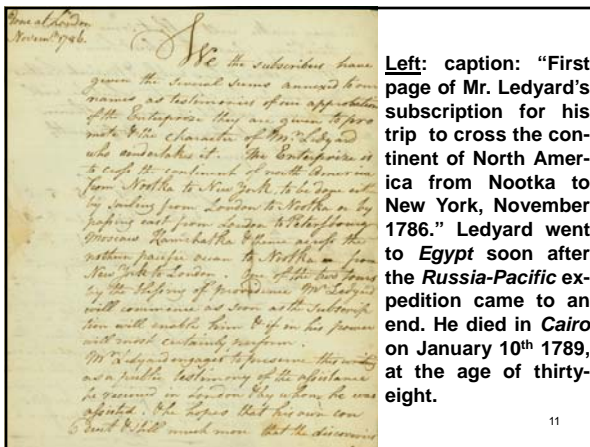 Done at London
Novemr. 1786.
We the subscribers have
given the several sums annexed to our
names, as testimonies of our approbation
of the Enterprize they are given to pro
mote & the character of Mr. Ledyard
who undertakes it. The Enterprize is
to cross the continent of north America
from Nootka to New York, to be done
by sailing from London to Nootka or by
passing east from London to Petersbourg
Moscow Kamchatka & thence across the
nothern pacific ocean to Nootka & from
New York to London. One of the two tours
by the blessing of providence Mr. Ledyard
will commence as soon as the subscrip
tion will enable him & if in his power
will most certainly perform.
Mr. Ledyard engages to preserve this
as a public testimony of the assistance
he received in London & by whom he was
assisted. & he hopes that his own con
duct & still much more that the discoveries
Left: caption: “First
page of Mr. Ledyard’s
subscription for his
trip to cross the con-
tinent of North Amer-
ica from Nootka to
New York, November
1786.” Ledyard went
to Egypt soon after
the Russia-Pacific ex-
pedition came to an
end. He died in Cairo
on January 10th 1789,
at the age of thirty-
eight.
11